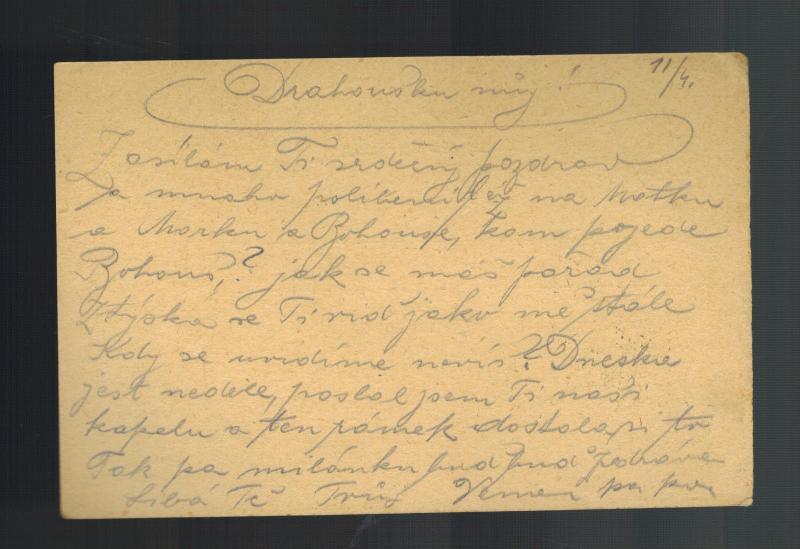 Drahoušku můj!
11/4.
Zasílám Ti srdečný pozdrav
a mnoho políbení též na Matku
a Marku a Bohouše, kam pojede
Bohouš,? jak se máš pořád
Ztýská se Ti viď jako mě stále
Kdy se uvidíme nevíš? Dneska
jest neděle, poslal jsem Ti naši
kapelu a ten rámek dostala si to
Tak pa miláčku buď zdráva
Líbá Tě Tvůj pa pa